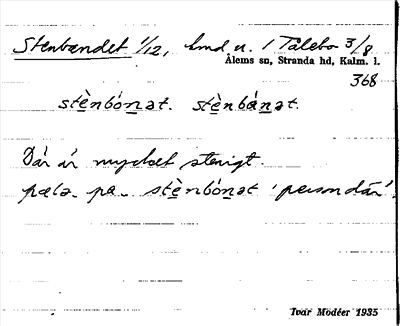 Stenbandet 1/12, hmd u. 1 Talebo 3/8
Ålems sn, Stranda hd, Kalm. l.
368
stènbónət. stènbánət.
Där är mycket stenigt.
pælə- pa- stènbónət 'person där'.
Ivar Modéer 1935